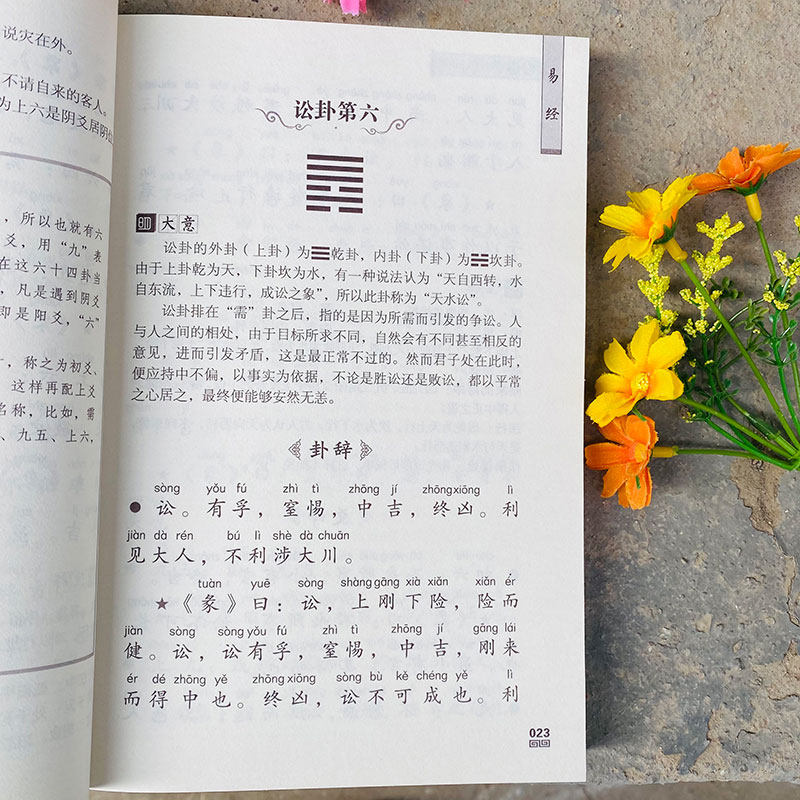 说灾在外。
不请自来的客人。
为上六是阴爻居阴位
，所以也就有六
爻，用“九”表
在这六十四卦当
，凡是遇到阴爻
即是阳爻，“六”
，称之为初爻、
这样再配上爻
名称，比如，需
、九五、上六，
易经
讼卦第六
大意
讼卦的外卦（上卦）为乾卦，内卦（下卦）为坎卦。
由于上卦乾为天，下卦坎为水，有一种说法认为“天自西转，水
自东流，上下违行，成讼之象”，所以此卦称为“天水讼”。
讼卦排在“需”卦之后，指的是因为所需而引发的争讼。人
与人之间的相处，由于目标所求不同，自然会有不同甚至相反的
意见，进而引发矛盾，这是最正常不过的。然而君子处在此时，
便应持中不偏，以事实为依据，不论是胜讼还是败讼，都以平常
之心居之，最终便能够安然无恙。
卦辞
sòng yǒu fú zhì tì zhōng jí zhōng xiōng lì
●讼。有孚，窒惕，中吉，终凶。利
jiàn dà rén bú lì shè dà chuān
见大人，不利涉大川。
tuàn yuē sòng shàng gāng xià xiǎn xiǎn ér
★《彖》曰：讼，上刚下险，险而
jiàn sòng sòng yǒu fú zhì tì zhōng jí gāng lái
健。讼，讼有孚，窒惕，中吉，刚来
ér dé zhōng yě zhōng xiōng sòng bù kě chéng yě lì
而得中也。终凶，讼不可成也。利
023